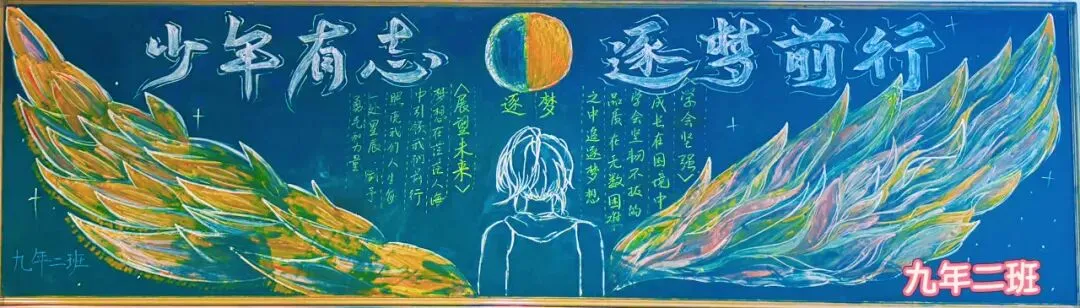 少年有志 逐梦前行
逐梦
《学会坚强》
成长在困境中
学会坚韧不拔的
品质在无数困难
之中追逐梦想
《展望未来》
梦想在茫茫人海
中引领我们前行
我们人生
星辰
力量
九年二班
九年二班